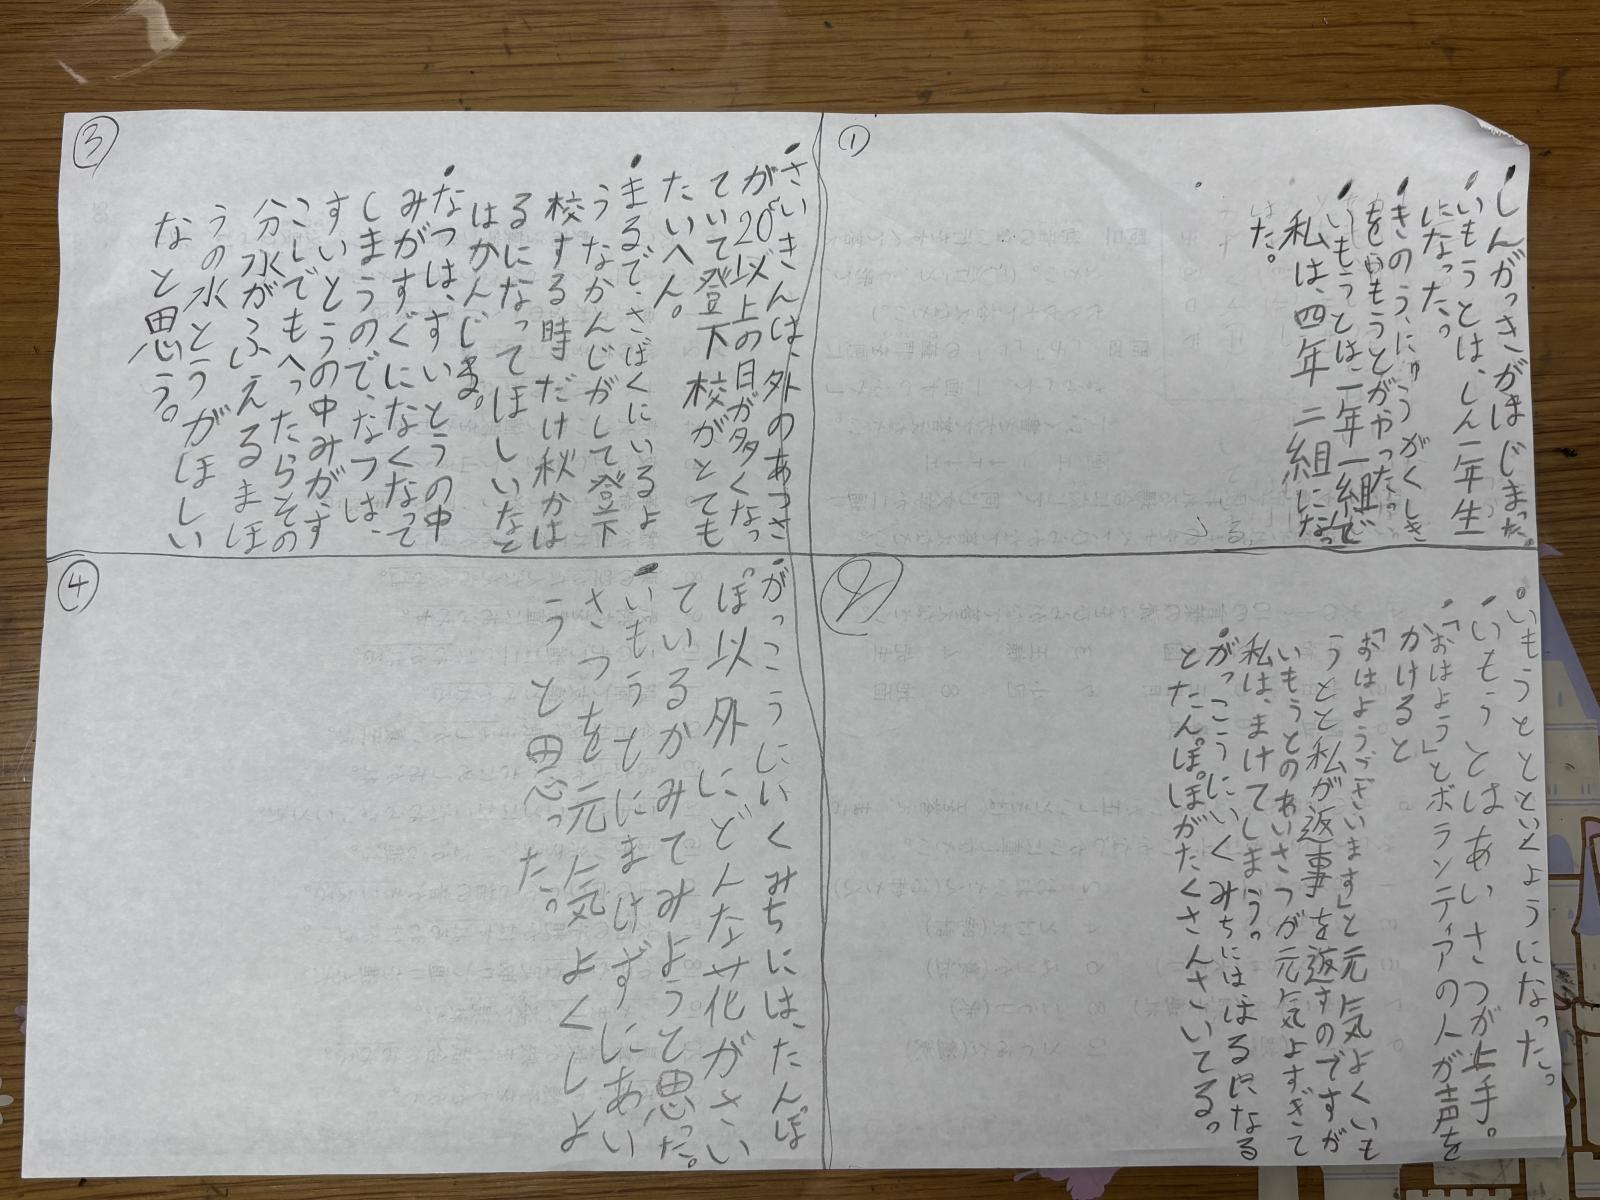 ①
・しんがっきがはじまった。
・いもうとは、しん一年生
になった。
・きのう、にゅうがくしき
をいもうとがやった。
・いもうとは、一年一組で
私は、四年二組になっ
た。
②
・いもうとといくようになった。
・いもうとはあいさつが上手。
・「おはよう」とボランティアの人が声を
かけると
「おはようございます」と元気よくいも
うとと私が返事を返すのですが
いもうとのあいさつが元気よすぎて
私は、まけてしまう。
・がっこうにいくみちにははるになる
とたんぽぽがたくさんさいてる。
③
・さいきんは、外のあつさ
が20°以上の日が多くなっ
ていて登下校がとても
たいへん。
・まるで、さばくにいるよ
うなかんじがして登下
校する時だけ秋かは
るになってほしいなと
はかんじる。
・なつは、すいとうの中
みがすぐになくなって
しまうので、なつは、
すいとうの中みが、す
こしでもへったらその
分水がふえるまほ
うの水とうがほしい
なと思う。
④
・がっこうにいくみちには、たんぽ
ぽ以外にどんな花がさい
ているかみてみようと思った。
・いもうとにまけずにあい
さつを元気よくしよ
うと思った。